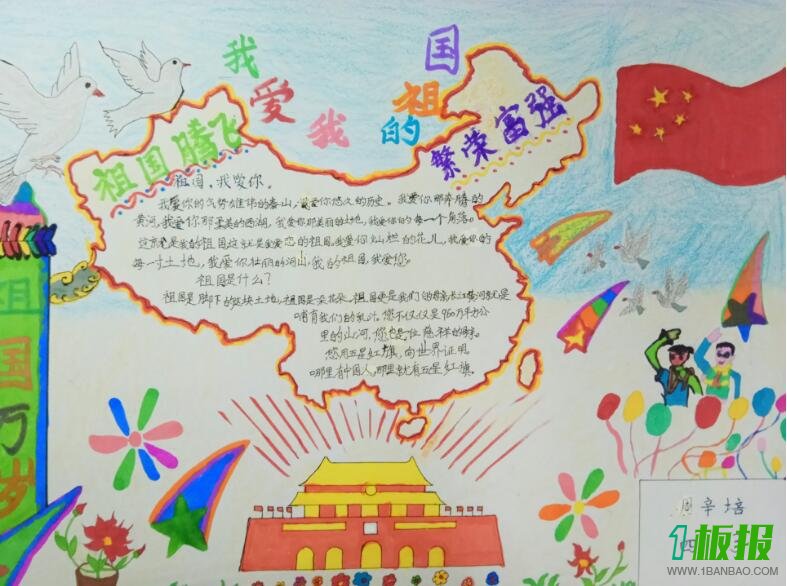 我爱我的祖国
祖国腾飞
繁荣富强
祖国，我爱你。
我爱你的气势雄伟的泰山，我爱你悠久的历史。我爱你那奔腾的
黄河，我爱你那柔美的西湖，我爱你那美丽的土地，我爱你的每一个角落。
这就是我的祖国这就是我爱恋的祖国，我爱你灿烂的花儿，我爱你的
每一寸土地，我爱你壮丽的河山，我的祖国，我爱您。
祖国是什么？
祖国是脚下的这块土地，祖国是 花朵，祖国更是我们 长江黄河就是
哺育我们的乳汁。您不仅仅是960万平方公
里的山河，您也是一位慈祥的母亲。
您用五星红旗，向世界证明。
哪里有中国人，哪里就有五星红旗。
祖国万岁
周辛培
四
1板报
WWW.1BANBAO.COM